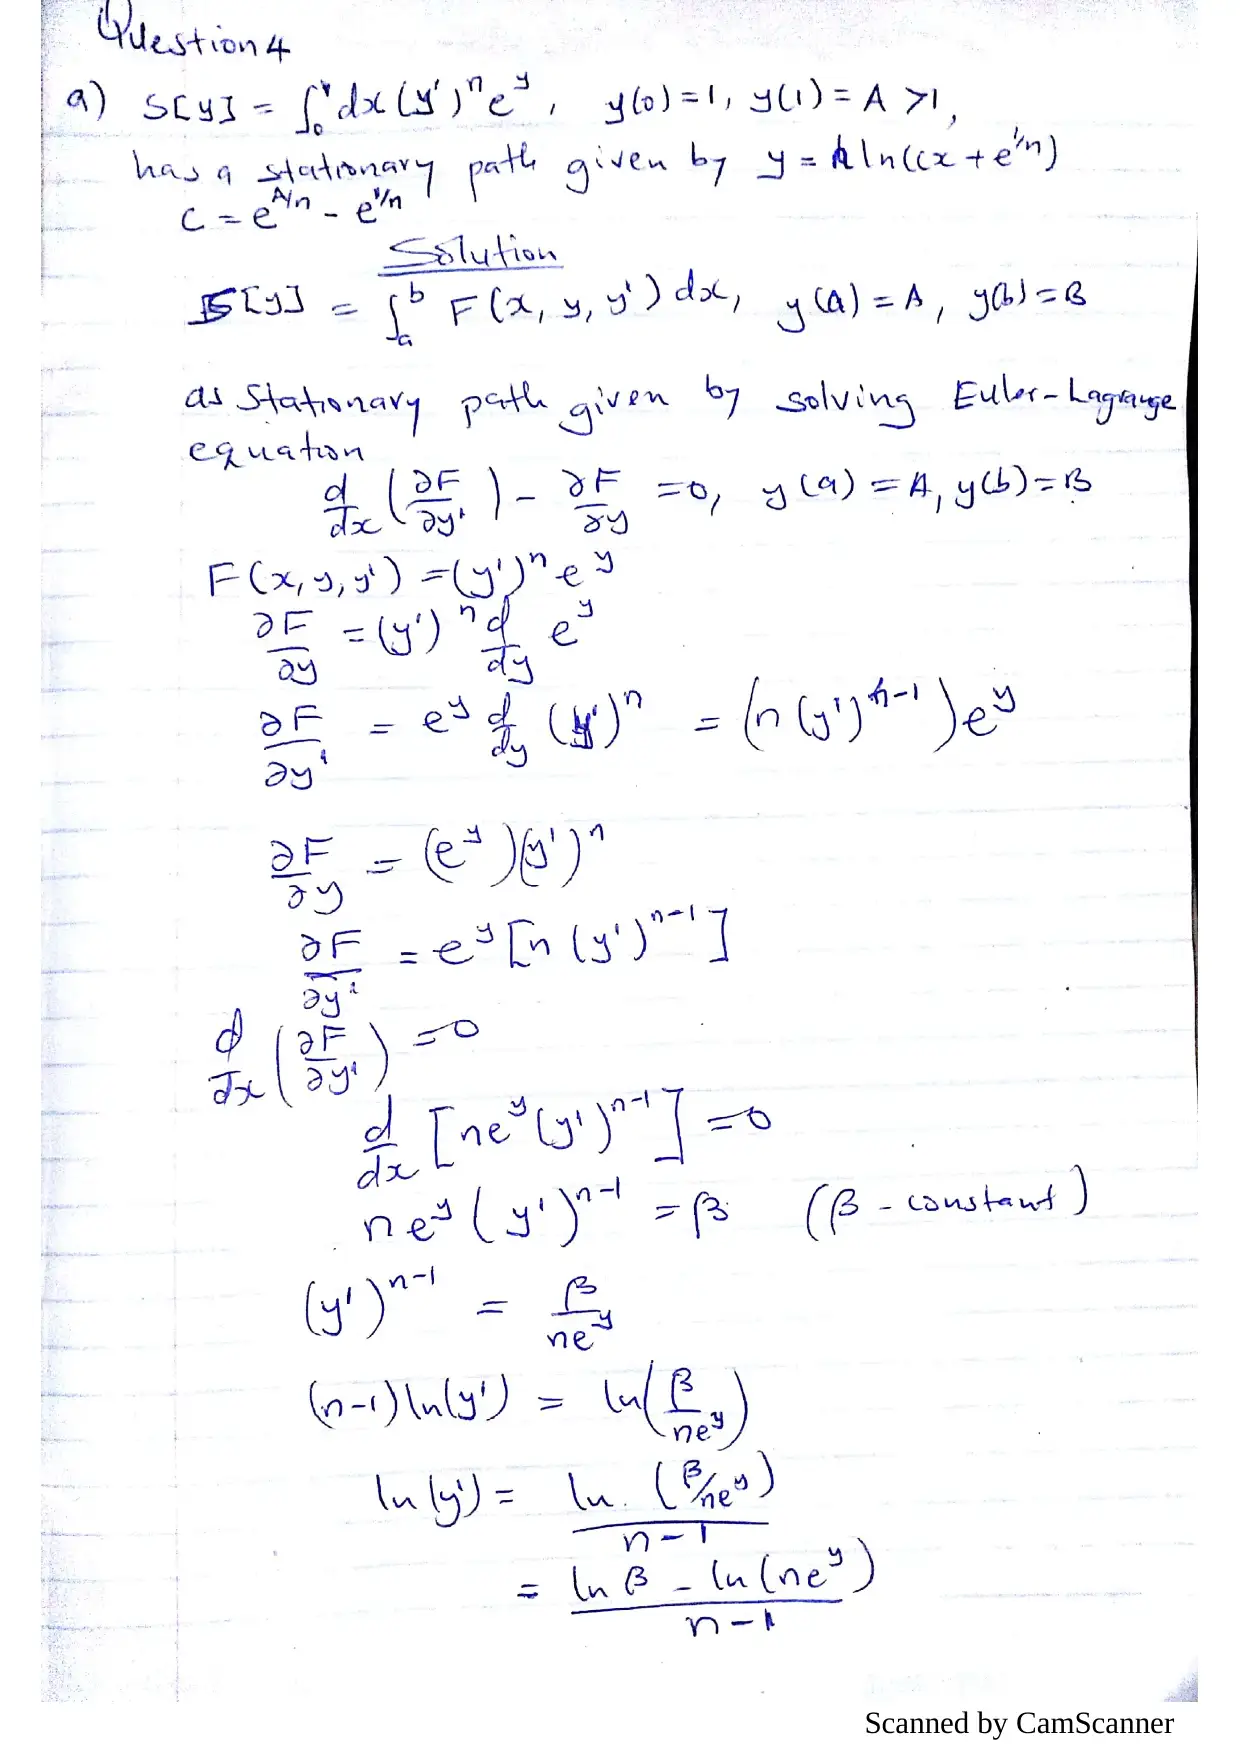 Question 4
a) S[y] = ∫₀¹ dx (y')ⁿ eʸ, y(0) = 1, y(1) = A > 1,
has a stationary path given by y = n ln(cx + e^{1/n})
C = e^{A/n} - e^{1/n}
Solution
S[y] = ∫ₐᵇ F(x, y, y') dx, y(a) = A, y(b) = B
as Stationary path given by solving Euler-Lagrange
equation
d/dx (∂F/∂y') - ∂F/∂y = 0, y(a) = A, y(b) = B
F(x, y, y') = (y')ⁿ eʸ
∂F/∂y = (y')ⁿ d/dy eʸ
∂F/∂y' = eʸ d/dy (y')ⁿ = (n (y')ⁿ⁻¹) eʸ
∂F/∂y = (eʸ)(y')ⁿ
∂F/∂y' = eʸ [n (y')ⁿ⁻¹]
d/dx (∂F/∂y') = 0
d/dx [neʸ (y')ⁿ⁻¹] = 0
neʸ (y')ⁿ⁻¹ = β (β - constant)
(y')ⁿ⁻¹ = β/neʸ
(n-1) ln(y') = ln(β/neʸ)
ln(y') = ln. (β/neʸ)/n-1
= ln β - ln(neʸ)/n-1
Scanned by CamScanner